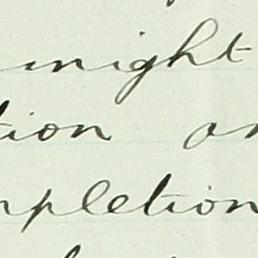 might
tion on
mpletion